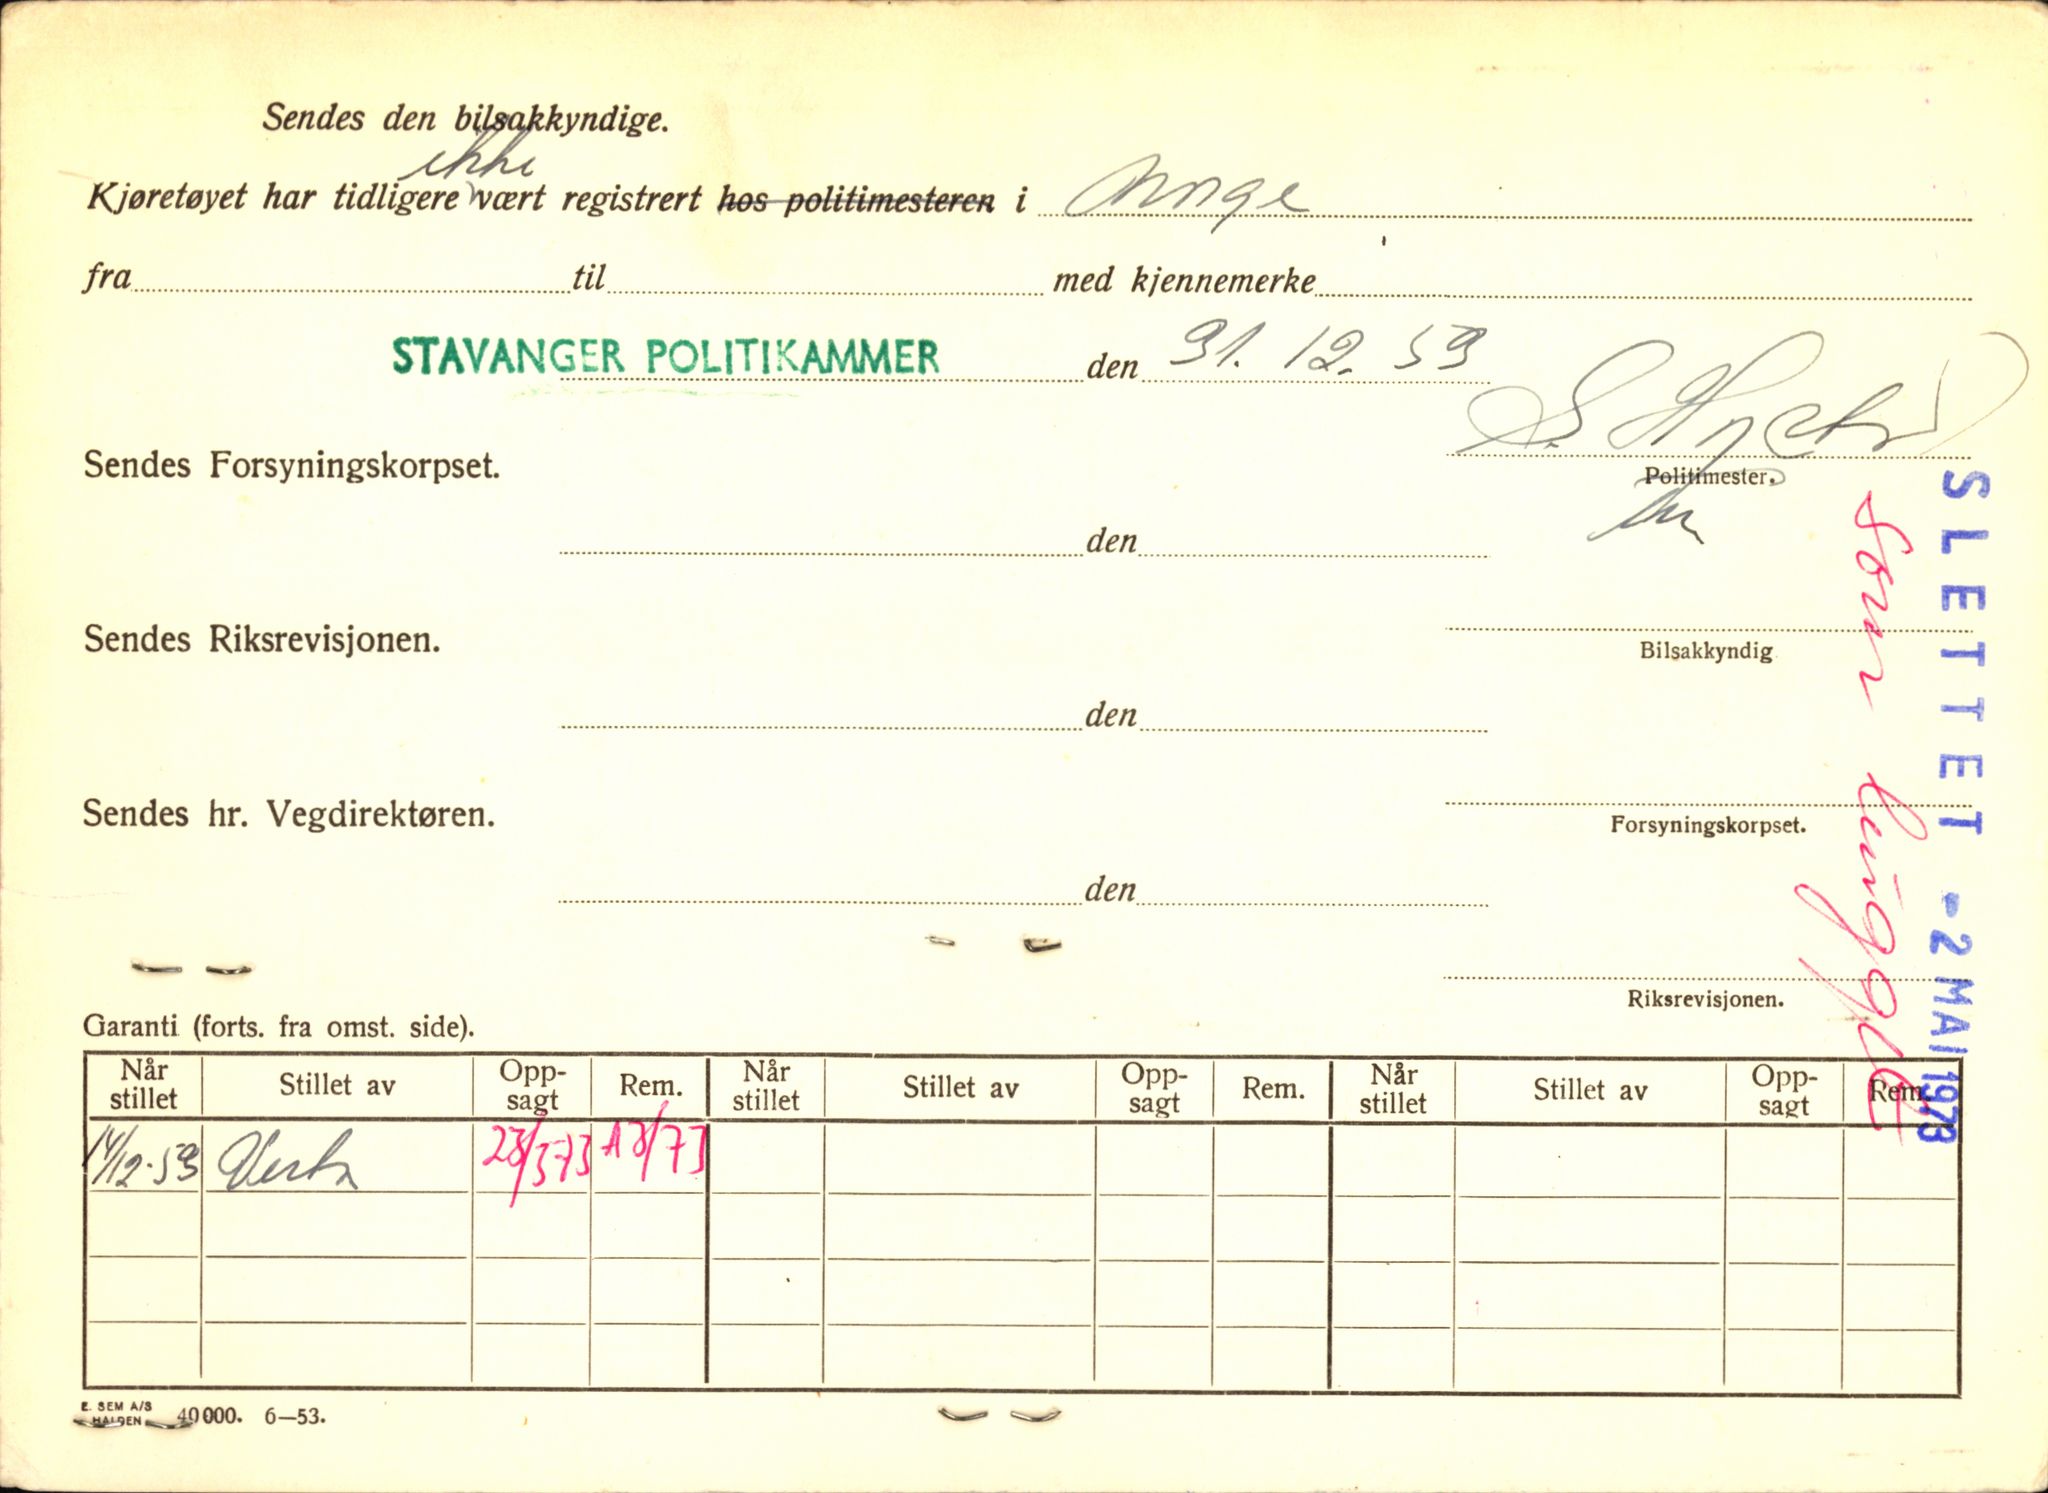 Sendes den bilsakkyndige.
ikke
Kjøretøyet har tidligere vært registrert hos politimesteren i Norge
fra til med kjennemerke
STAVANGER POLITIKAMMER den 31.12.53
Sendes Forsyningskorpset.
Politimester.
den
Sendes Riksrevisjonen.
Bilsakkyndig
den
Sendes hr. Vegdirektøren.
Forsyningskorpset.
den
Riksrevisjonen.
SLETTET -2 MAI 1973
som
Garanti (forts. fra omst. side).
Når stillet Stillet av Opp-sagt Rem. Når stillet Stillet av Opp-sagt Rem. Når stillet Stillet av Opp-sagt Rem.
14/12-53 Vesta 28/3-73
E. SEM A/S
HALDEN 40000. 6—53.